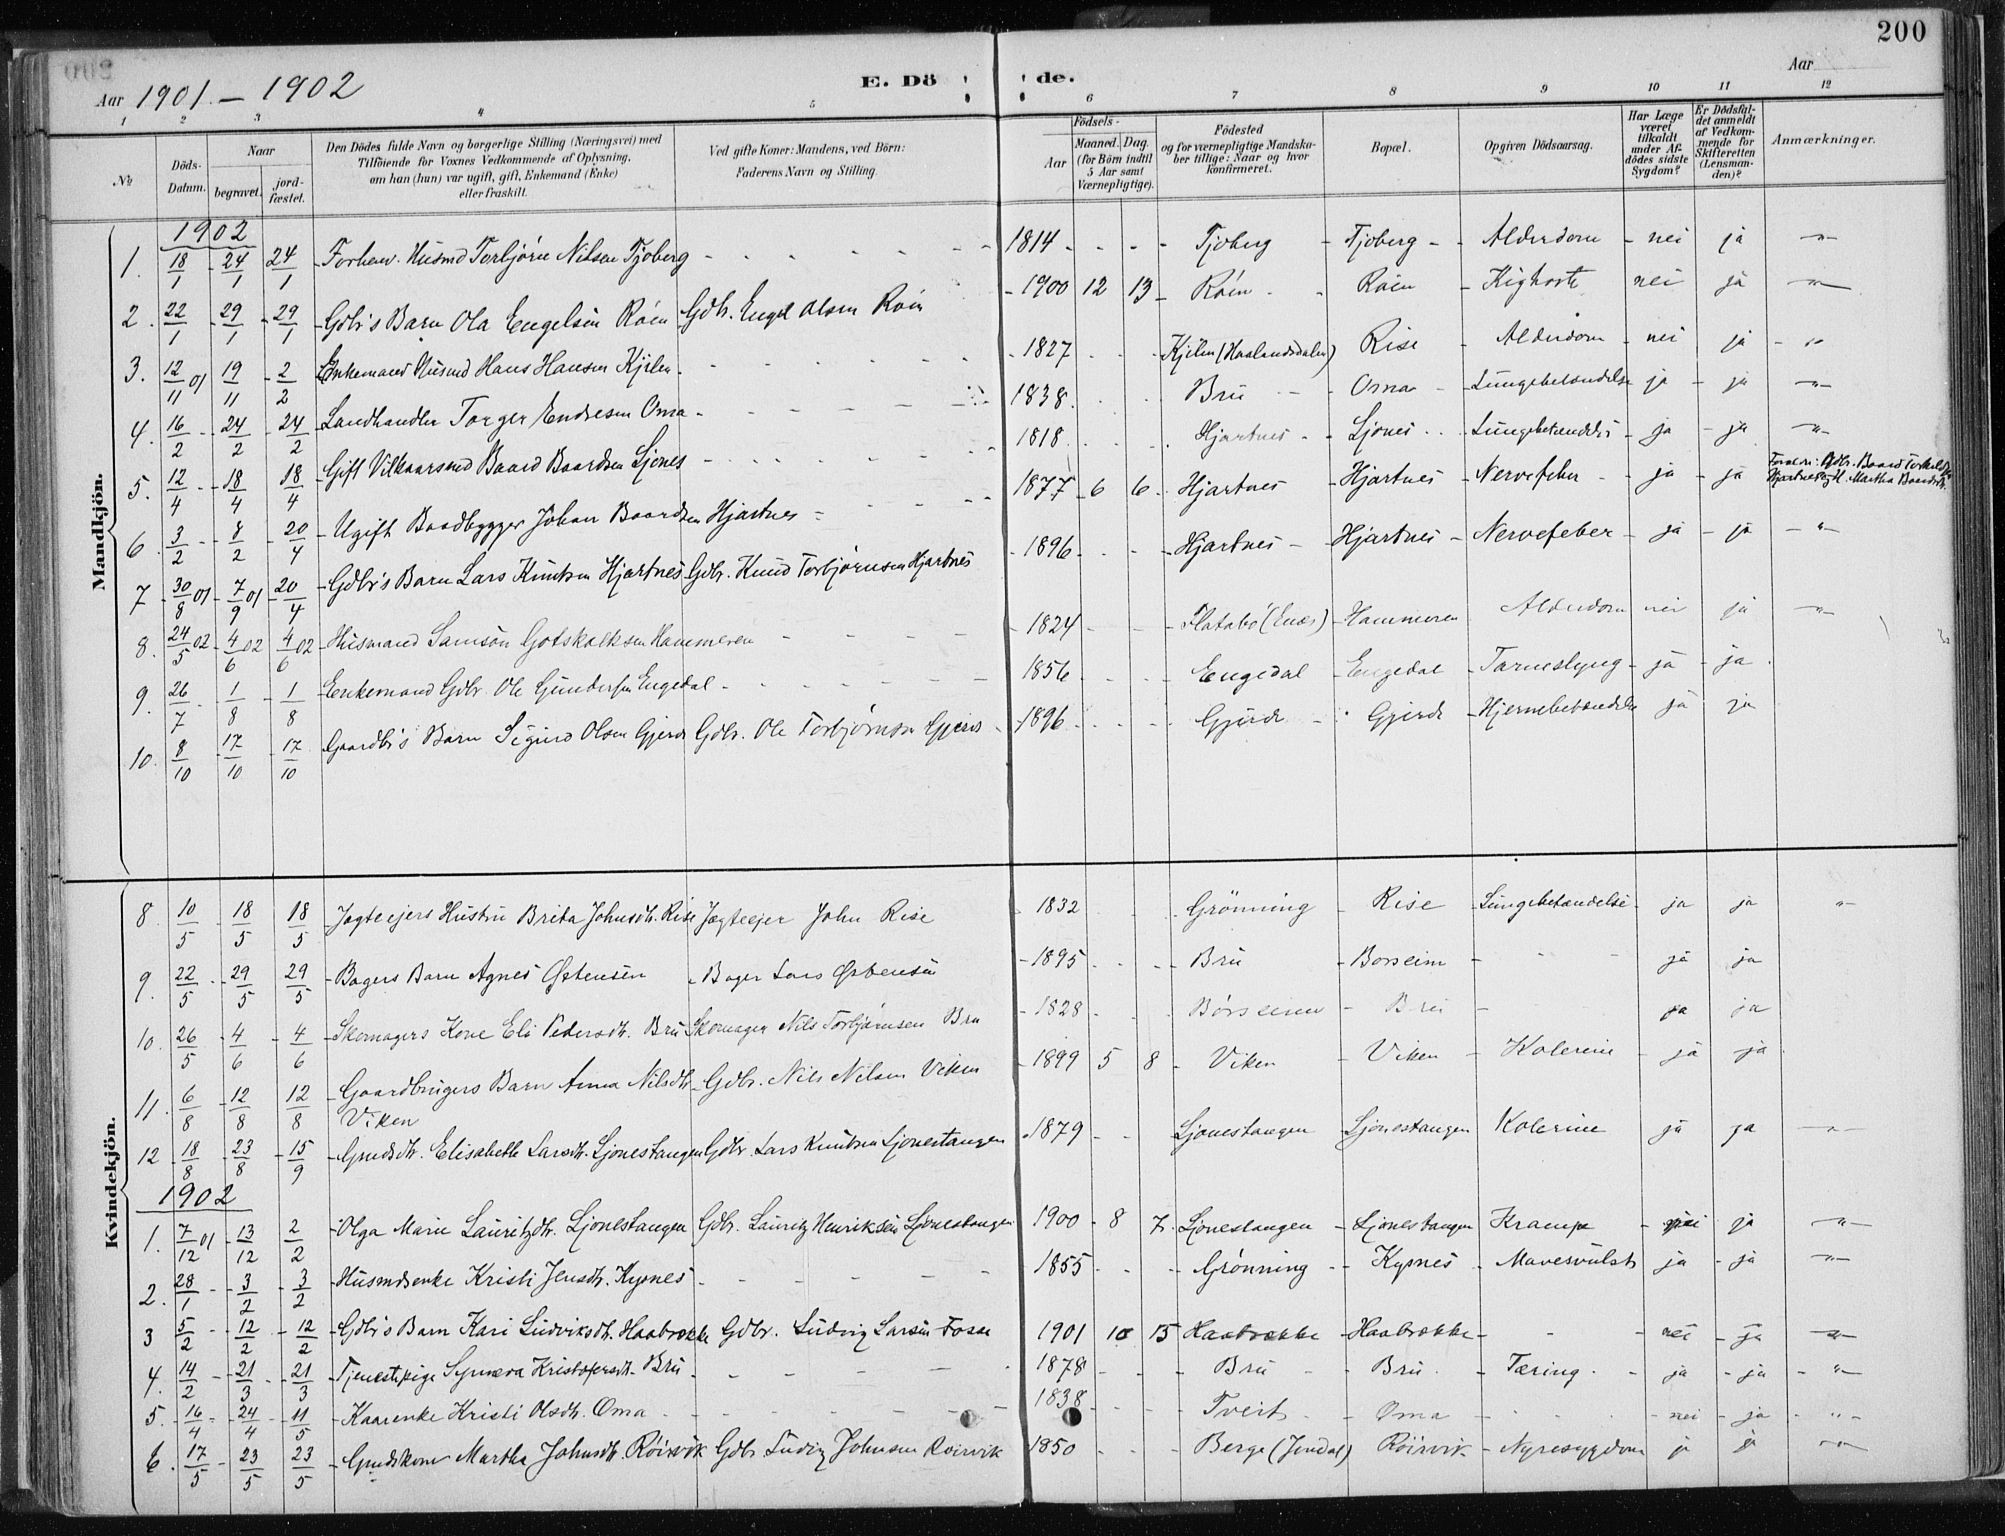 200
Aar 1901 – 1902
E. Dö de.
Aar
1 2 3 4 5 6 7 8 9 10 11 12
№ Döds-Datum. Naar begravet. jord-fæstet.
Den Dödes fulde Navn og borgerlige Stilling (Næringsvei) med
Tilföiende for Voxnes Vedkommende af Oplysning,
om han (hun) var ugift, gift, Enkemand (Enke)
eller fraskilt.
Ved gifte Koner: Mandens, ved Börn:
Faderens Navn og Stilling.
Födsels-
Aar Maaned. Dag.
(for Börn indtil
5 Aar samt
Værnepligtige).
Födested
og for værnepligtige Mandska-
ber tillige: Naar og hvor
konfirmeret.
Bopæl.
Opgiven Dödsaarsag.
Har Læge
været
tilkaldt
under Af-
dödes sidste
Sygdom?
Er Dödsfal-
det anmeldt
af Vedkom-
mende for
Skifteretten
(Lensman-
den)?
Anmærkninger.
Mandkjön.
1902
1. 18/1 - 24/1 24/1 - Forhenv. Husmd Torbjörn Nilsen Tjoberg - 1814 - Tjoberg - Tjoberg - Alderdom - nei ja -"-
2. 22/1 - 29/1 - 29/1 - Gdbr's Barn Ola Engelsen Röen Gdbr. Engel Olsen Röen - 1900 12 13 - Röen - Röen - Kighoste nei ja -"-
3. 12/11 01 19/11 - 2/2 Enkemand Husmd Hans Hansen Kjilen - 1827 - Kjilen (Haalandsdalen) Rise - Alderdom - nei ja - "
4. 16/2 - 24/2 - 24/2 - Landhandler Torger Endresen Oma - 1838 Bru - Oma - Lungebetændelse ja - ja -"-
5. 12/4 - 18/4 18/4 - Gift Vilkaarsmd Baard Baardsen Ljones - 1818 Hjartnes - Ljones - Lungebetændelse - ja - ja -"-
6. 3/2 - 8/2 - 20/4 - Ugift Baadbygger Johan Baardsen Hjartnes - 1877 - 6 6 - Hjartnes - Hjartnes - Nervefeber - ja - ja Foreldre: Gdbr. Baard Hjartnes og H. Martha Baardsdtr.
7 - 30/8 01 - 7/9 01 - 20/4 - Gdbr's Barn Lars Knutsen Hjartnes Gdbr. Knud Torbjörnsen Hjartnes - 1896 - Hjartnes - Hjartnes - Nervefeber - ja - ja - "-
8. 24/5 02 - 4/6 02 4/6 02 - Husmand Samson Gotskalksen Hammeren - 1824 - Flatabö (Enæs) - Hammeren Alderdom nei ja -"-
9. 26/7 - 1/8 - 1/8 - Enkemand Gdbr Ole Gundersen Engedal - 1856 - Engedal - Engedal - Tarmeslyng - ja - ja
10. 8/10 - 17/10 - 17/10 - Gaardbr's Barn Sigurd Olsen Gjerde Gdbr. Ole Torbjörnsen Gjerde - 1896 - Gjerde - Gjerde - Hjernebetændelse ja ja
Kvindekjön.
8. 10/5 - 18/5 18/5 - Jagteejers Hustru Brita Johnsdtr. Rise Jægteejer John Rise - 1832 Grönning - Rise - Lungebetændelse - ja ja "
9. 22/5 - 29/5 29/5 - Bagers Barn Agnes Östensen - Bager Lars Östensen - 1895 - Bru - Borseim - ja ja
10. 26/5 - 4/6 - 4/6 - Skomagers Kone Eli Pedersdtr. Bru Skomager Nils Torbjörnsen Bru - 1828 - Börseim - Bru - ja ja
11. 6/8 - 12/8 12/8 - Gaardbrugers Barn Anna Nilsdtr - Gdbr. Nils Nilsen Viken - 1899 5 8 - Viken - Viken - Kolerine - ja - ja
Viken
12 - 18/8 - 23/8 - 15/9 - Gmdsdtr. Elisabeth Larsdtr. Ljonestangen Gdbr. Lars Knutsen Ljonestangen - 1879 - Ljonestangen - Ljonestangen Kolerine ja ja -"-
1902
1. 7/12 01 - 13/12 2/2 - Olga Marie Lauritzdtr. Ljonestangen Gdbr. Lauritz Henriksen Ljonestangen 1900 - 8 7. Ljonestangen - Ljonestangen Krampe - nei ja -"-
2. 28/1 - 3/2 - 3/2 - Husmdsenke Kristi Jensdtr. Kysnes - 1855 - Grönning - Kysnes - Mavesvulst ja - ja -"-
3 5/2 - 12/2 - 12/2 - Gdbr's Barn Kari Ludviksdtr. Haabrekke Gdbr. Ludvig Larsen Fosse 1901 10 15 Haabrekke - Haabrekke - nei - ja -"-
4. 14/2 - 21/3 - 21/3 - Tjenestepige Synneva Kristofersdtr. Bru - 1878 - Bru - Bru - Tæring - ja - ja - "-
5. 16/4 - 24/4 - 11/5 - Kaarenke Kristi Olsdtr. Oma - 1838 - Tveit - Oma - nei - ja - "-
6. 17/5 - 23/5 23/5 - Gmdskone Martha Johnsdtr. Röirvik Gdbr. Ludvig Johnsen Röirvik 1850 - Berge (Jondal) Röirvik - Nyresygdom ja ja -"-